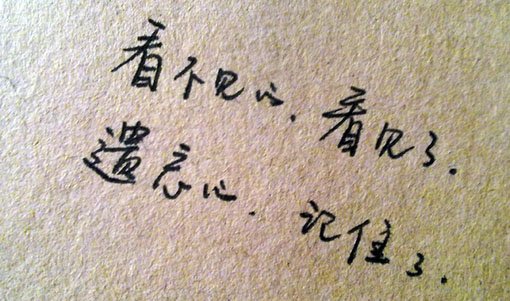 看不见心，看见了．
遗忘心．记住了．